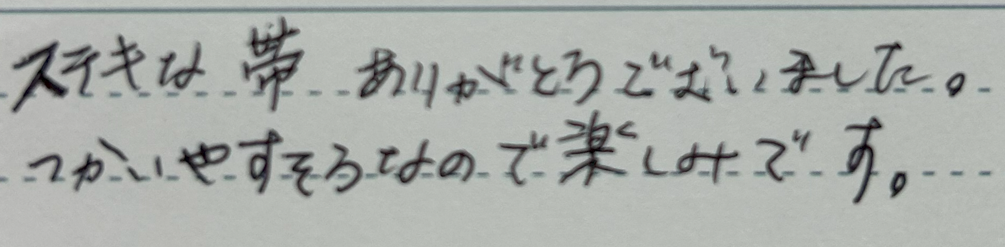 ステキな帯 ありがとうございました。
つかいやすそうなので楽しみです。